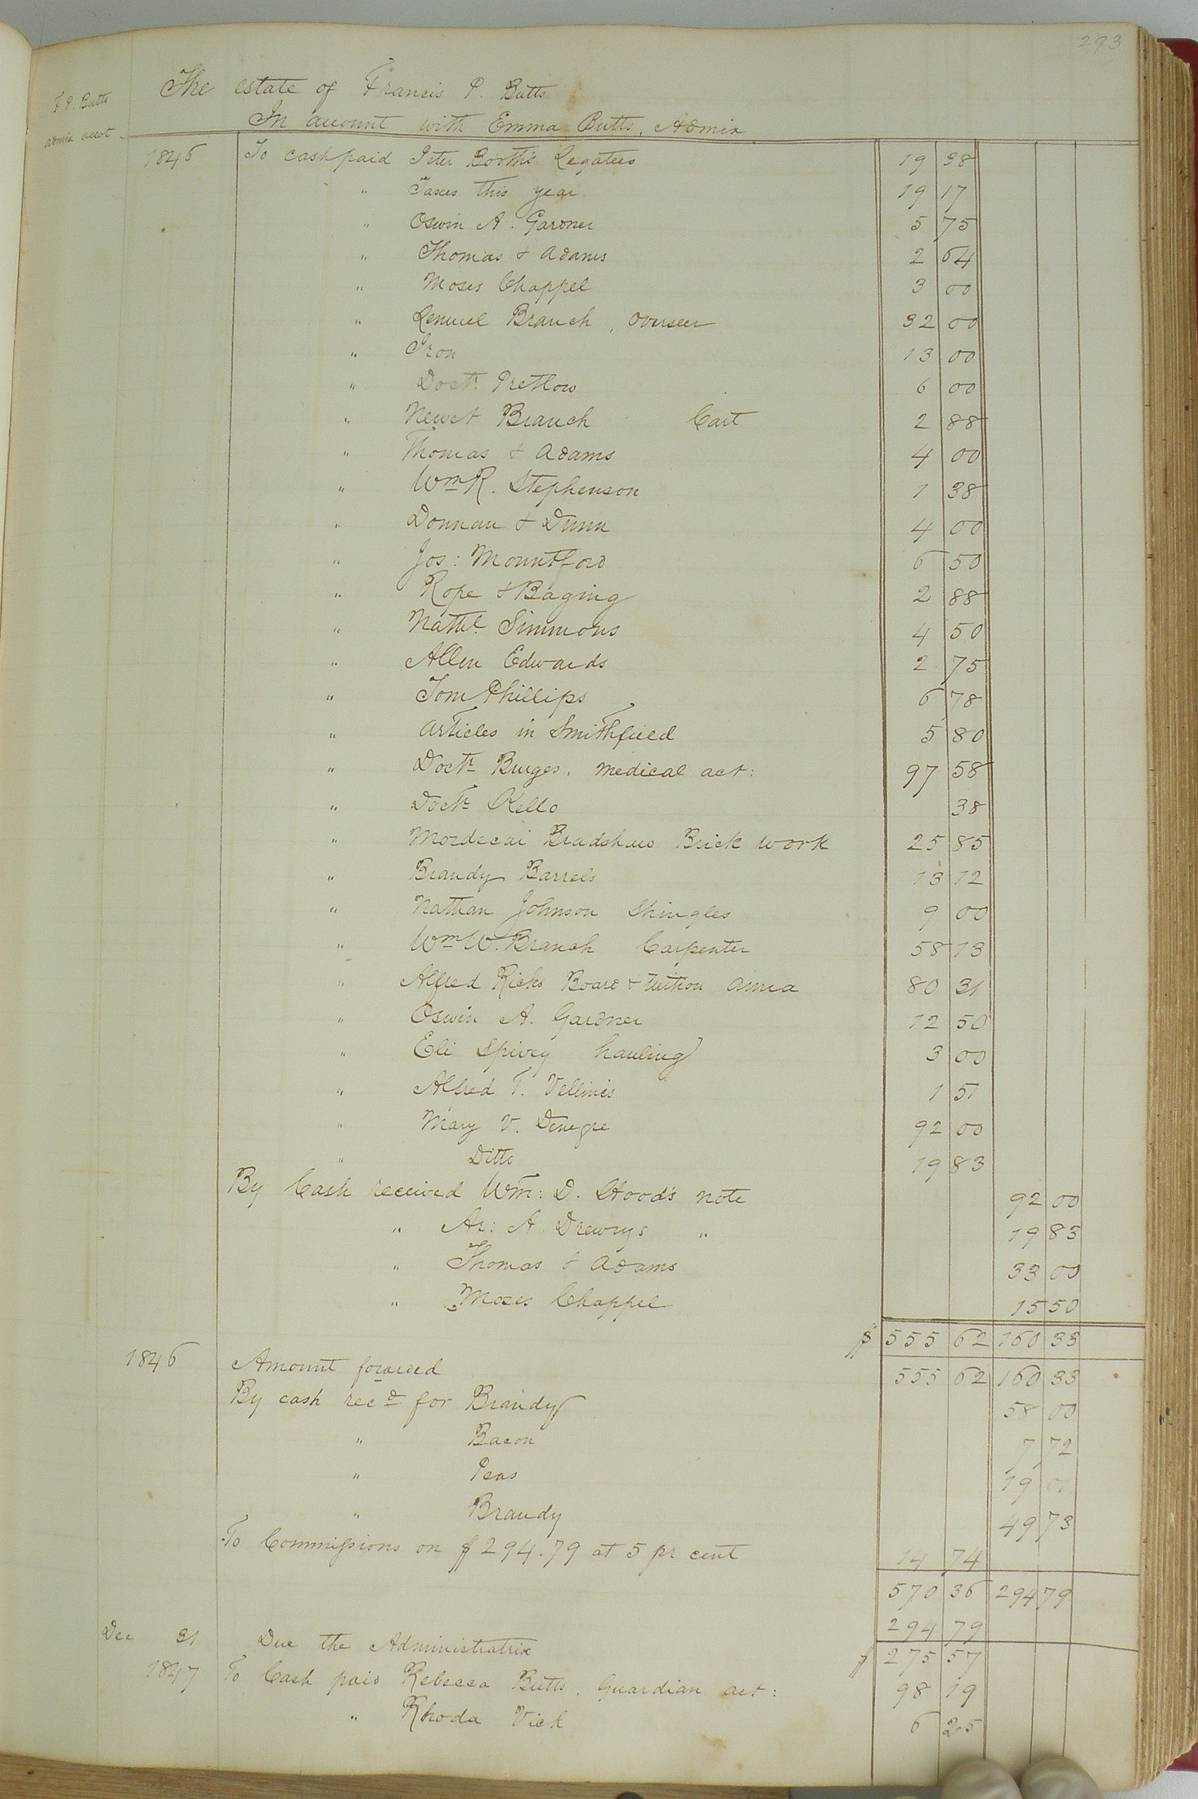 293
F. P. Butts
admix acct
The estate of Francis P. Butts
In account with Emma Butts, Admix
1846 To cash paid Peter Booth's Legatees 19 38
" Taxes this year 19 17
" Oswin A. Gardner 5 75
" Thomas & Adams 2 64
" Moses Chappel 3 00
" Lemuel Branch, overseer 32 00
" Iron 13 00
" Doctr. Pretlow 6 00
" Newet Branch Cart 2 88
" Thomas & Adams 4 00
" Wm R. Stephenson 1 38
" Donnan & Dunn 4 00
" Jos: Mountford 6 50
" Rope & Baging 2 88
" Nathl. Simmons 4 50
" Allen Edwards 2 75
" Tom Phillips 6 78
" articles in Smithfield 5 80
" Doctr Burges, medical act: 97 58
" Doctr Kello 38
" Mordecai Bradshaw Brick work 25 85
" Brandy Barrels 13 12
" Nathan Johnson Shingles 9 00
" Wm W. Branch Carpenter 58 13
" Alfred Ricks Board & tuition Anna 80 31
" Oswin A. Gardner 12 50
" Eli Spivey hauling 3 00
" Alfred T. Vellines 1 51
" Mary V. Denegre 92 00
" Ditto 19 83
By Cash received Wm: D. Hood's note 92 00
" Ar: A. Drewrys " 19 83
" Thomas & Adams 33 00
" Moses Chappel 15 50
$ 555 62 160 33
1846 Amount forward 555 62 160 33
By cash recd for Brandy 58 00
" Bacon 7 72
" Peas 19 01
" Brandy 49 73
To Commissions on $294.79 at 5 pr cent 14 74
570 36 294 79
294 79
Dec 31 Due the Administratrix $ 275 57
1847 To Cash paid Rebecca Butts, Guardian act: 98 19
" Rhoda Vick 6 25